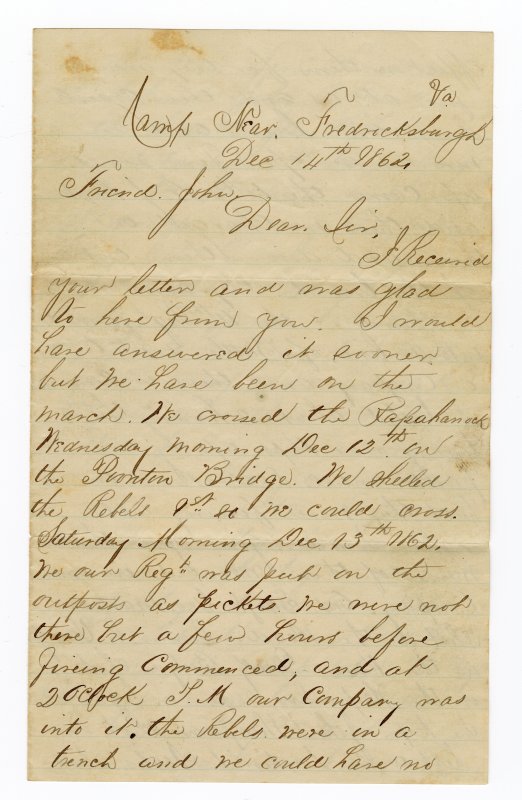 Va
Camp Near. Fredricksburgh
Dec 14th 1862.
Friend. John,
Dear. Sir,
I Received
your letter and was glad
to here from you. I would
have answered it sooner
but we have been on the
march. We croised the Rapahanock
Wednesday morning Dec 12th on
the Poonton Bridge. We shelled
the Rebels 1st so we could cross.
Saturday Morning Dec 13th 1862.
We our Regt was put on the
outposts as pickets we were not
there but a few hours before
fireing Commenced, and at
2 OClock P.M our Company was
into it. the Rebels were in a
trench and we could have no